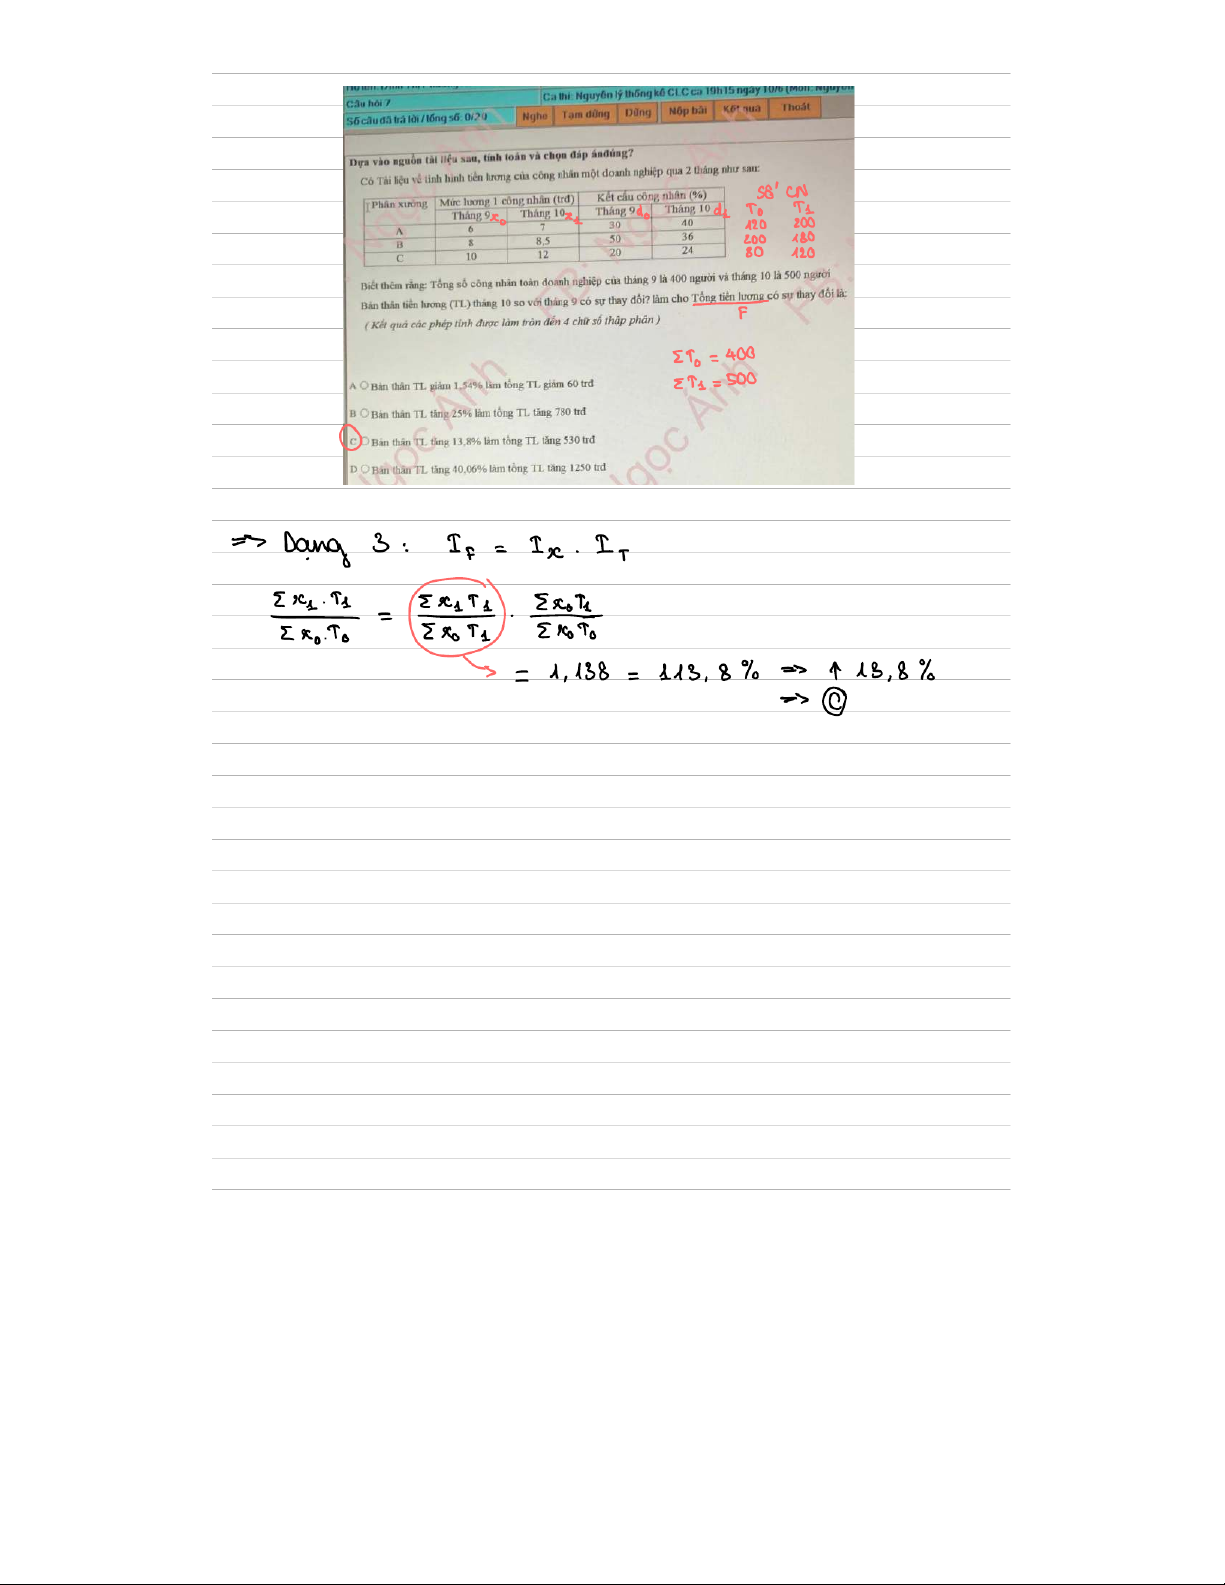 Câu hỏi 7
Ca thi: Nguyên lý thống kê CLC ca 19h15 ngày 10/6 (Môn: Nguyên
Số câu đã trả lời / tổng số: 0/20
Nghe Tạm dừng Dừng Nộp bài Kết quả Thoát
Dựa vào nguồn tài liệu sau, tính toán và chọn đáp ánđúng?
Có Tài liệu về tình hình tiền lương của công nhân một doanh nghiệp qua 2 tháng như sau:
Phân xưởng Mức lương 1 công nhân (trđ) Kết cấu công nhân (%) Số' CN
Tháng 9 x₀ Tháng 10 x₁ Tháng 9 d₀ Tháng 10 d₁ T₀ T₁
A 6 7 30 40 120 200
B 8 8,5 50 36 200 180
C 10 12 20 24 80 120
Biết thêm rằng: Tổng số công nhân toàn doanh nghiệp của tháng 9 là 400 người và tháng 10 là 500 người
Bản thân tiền lương (TL) tháng 10 so với tháng 9 có sự thay đổi? làm cho Tổng tiền lương có sự thay đổi là:
F
( Kết quả các phép tính được làm tròn đến 4 chữ số thập phân )
ΣT₀ = 400
ΣT₁ = 500
A Bản thân TL giảm 1,54% làm tổng TL giảm 60 trđ
B Bản thân TL tăng 25% làm tổng TL tăng 780 trđ
C Bản thân TL tăng 13,8% làm tổng TL tăng 530 trđ
D Bản thân TL tăng 40,06% làm tổng TL tăng 1250 trđ
Ngọc Ánh
FB: Ngọc Ánh
FB:
Ngọc Ánh
Ngọc Ánh
=> Dạng 3 : I_F = I_x . I_T
Σx₁.T₁ / Σx₀.T₀ = Σx₁T₁ / Σx₀T₁ . Σx₀T₁ / Σx₀T₀
= 1,138 = 113,8 % => ↑ 13,8 %
=> C